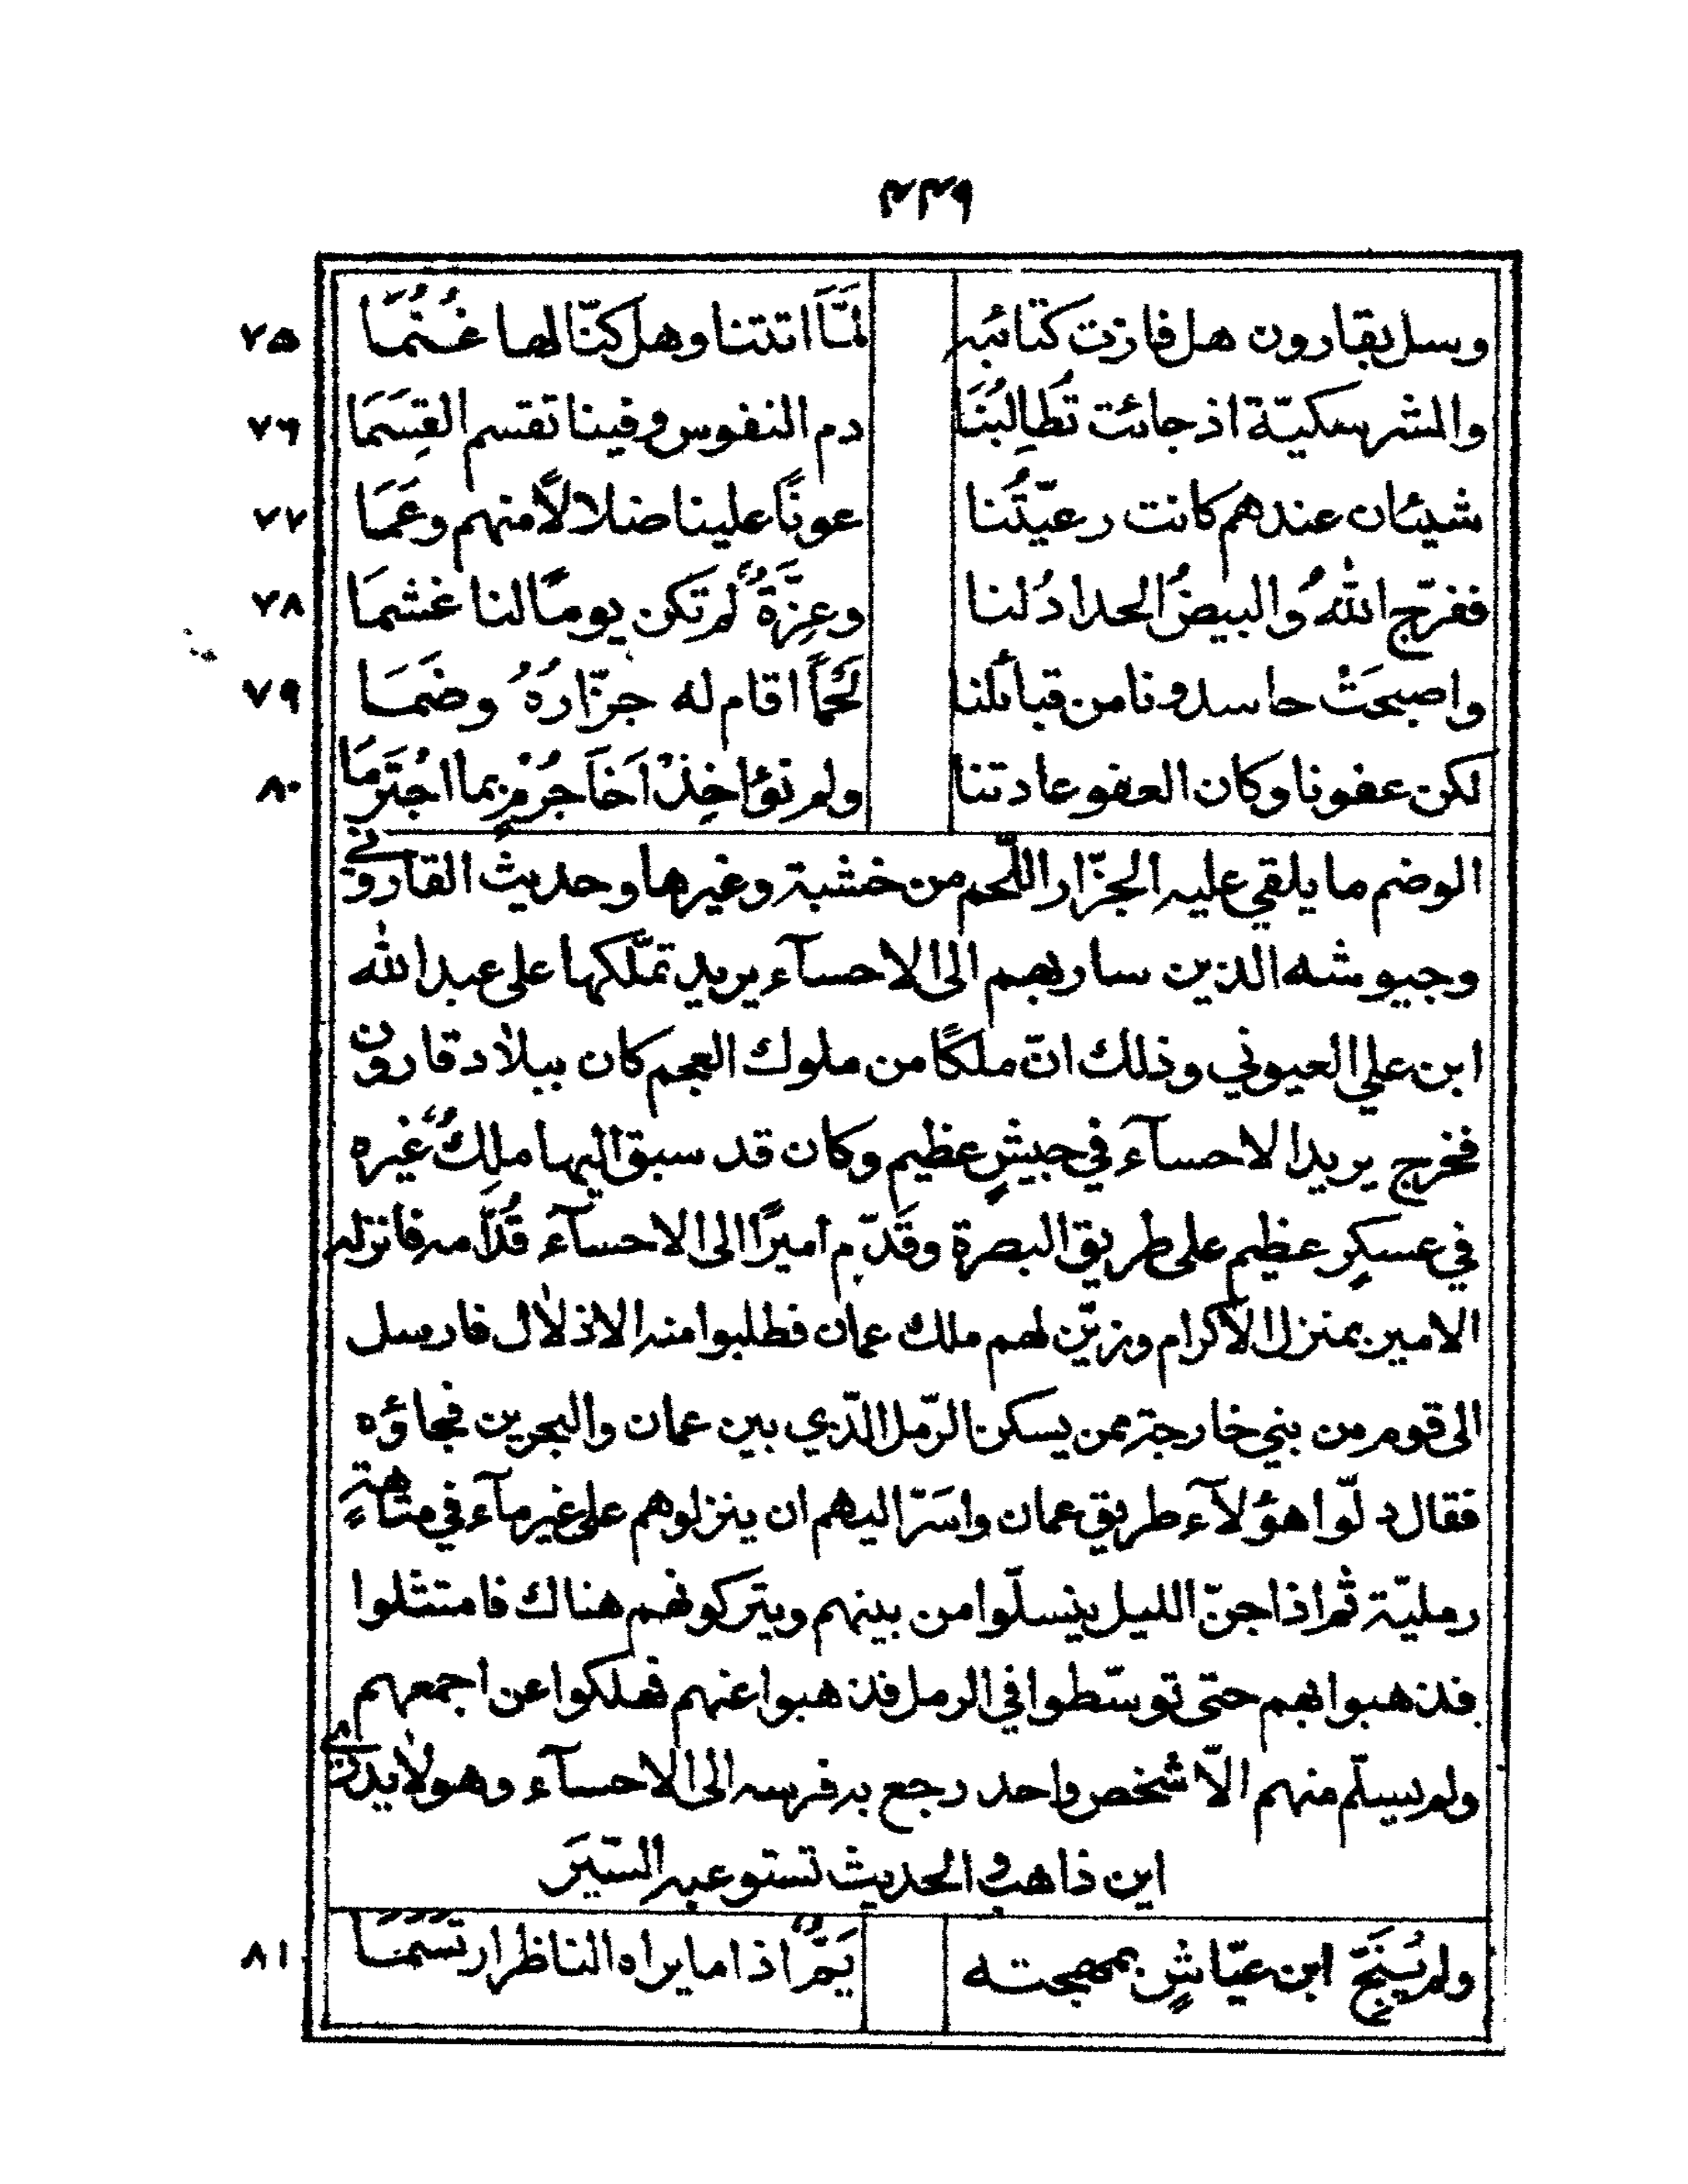 ٤٣٩
وسل بقارون هل فازت كتائبه لمَّا اتتنا وهل كنّا لها غُنُمَا ٧٥
والمشرسكيّة اذ جائت تُطالِبُنَا دم النفوس وفينا تقسم القِسَمَا ٧٦
شيئان عندهم كانت رعيّتُنا عونًا علينا ضلالًا منهم وعَمَا ٧٧
ففرّج اللهُ والبيضُ الحدادُ لنا وعِزَّةٌ لم تكن يومًا لنا غشمَا ٧٨
واصبحَتْ حاسدونا من قبائلنا لَحْمًا اقام له جزّارُهُ وضمَا ٧٩
لكن عفونا وكان العفو عادتنا ولم نؤاخِذْ اَخَا جُرْمٍ بما اجْتَرَمَا ٨٠
الوضم ما يلقي عليه الجزّار اللّحم من خشبة وغيرها وحديث القاروني
وجيوشه الذين سار بهم الى الاحسآء يريد تملّكها على عبد الله
ابن علي العيوني وذلك انّ ملكًا من ملوك العجم كان ببلاد قارون
فخرج يريد الاحسآء في جيشٍ عظيم وكان قد سبق اليها ملِكٌ غيره
في عسكرٍ عظيم على طريق البصرة وقَدّم اميرًا الى الاحسآء قُدّامه فانزله
الامير بمنزل الاكرام وزيّن لهم ملك عمان فطلبوا منه الاذلال فارسل
الى قوم من بني خارجة ممن يسكن الرّمل الّذي بين عمان والبحرين فجاؤه
فقال دلّوا هؤلآء طريق عمان واسَرّ اليهم ان ينزلوهم على غير مآء في متاهةٍ
رمليّة ثم اذا جنّ الليل ينسلّوا من بينهم ويتركونهم هناك فامتثلوا
فذهبوا بهم حتى توسّطوا في الرمل فذهبوا عنهم فهلكوا عن اجمعهم
ولم يسلّم منهم الّا شخص واحد رجع به فرسه الى الاحسآء وهو لا يدري
اين ذاهب والحديث تستوعبه السّيَر
ولم يُنَجِّ ابن عيّاشٍ بمهجته يَمٌّ اذا ما يراه الناظر ارتسَمَا ٨١